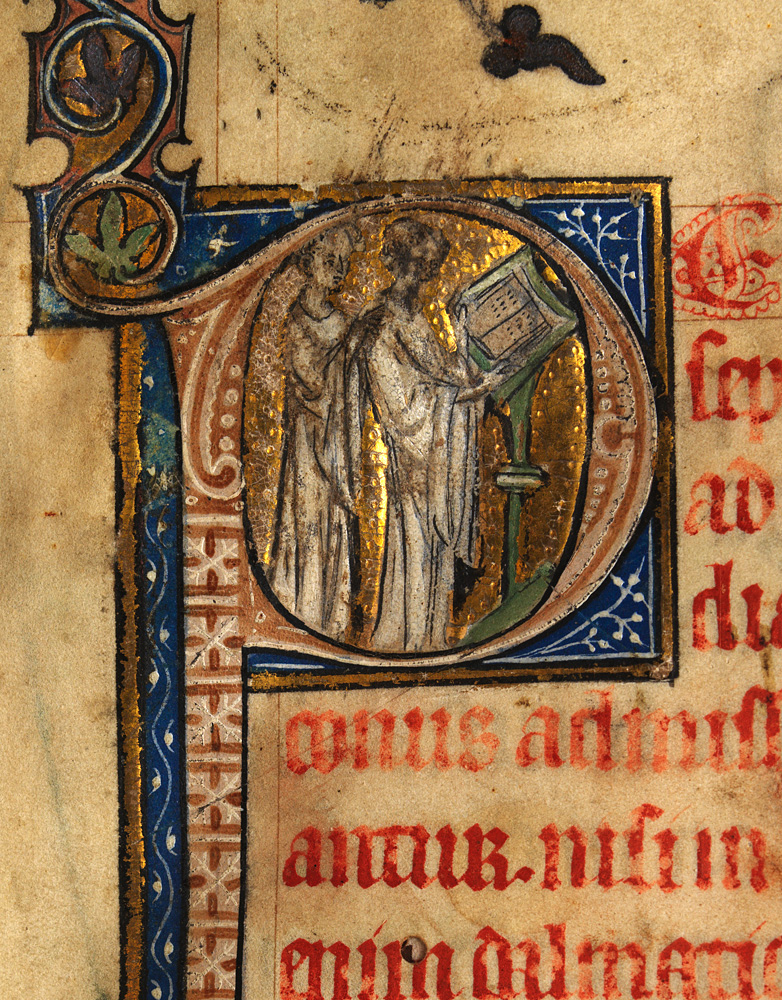 P
E
sep
ad
dia
conus admist
antur. nisi in
enim dalmatic